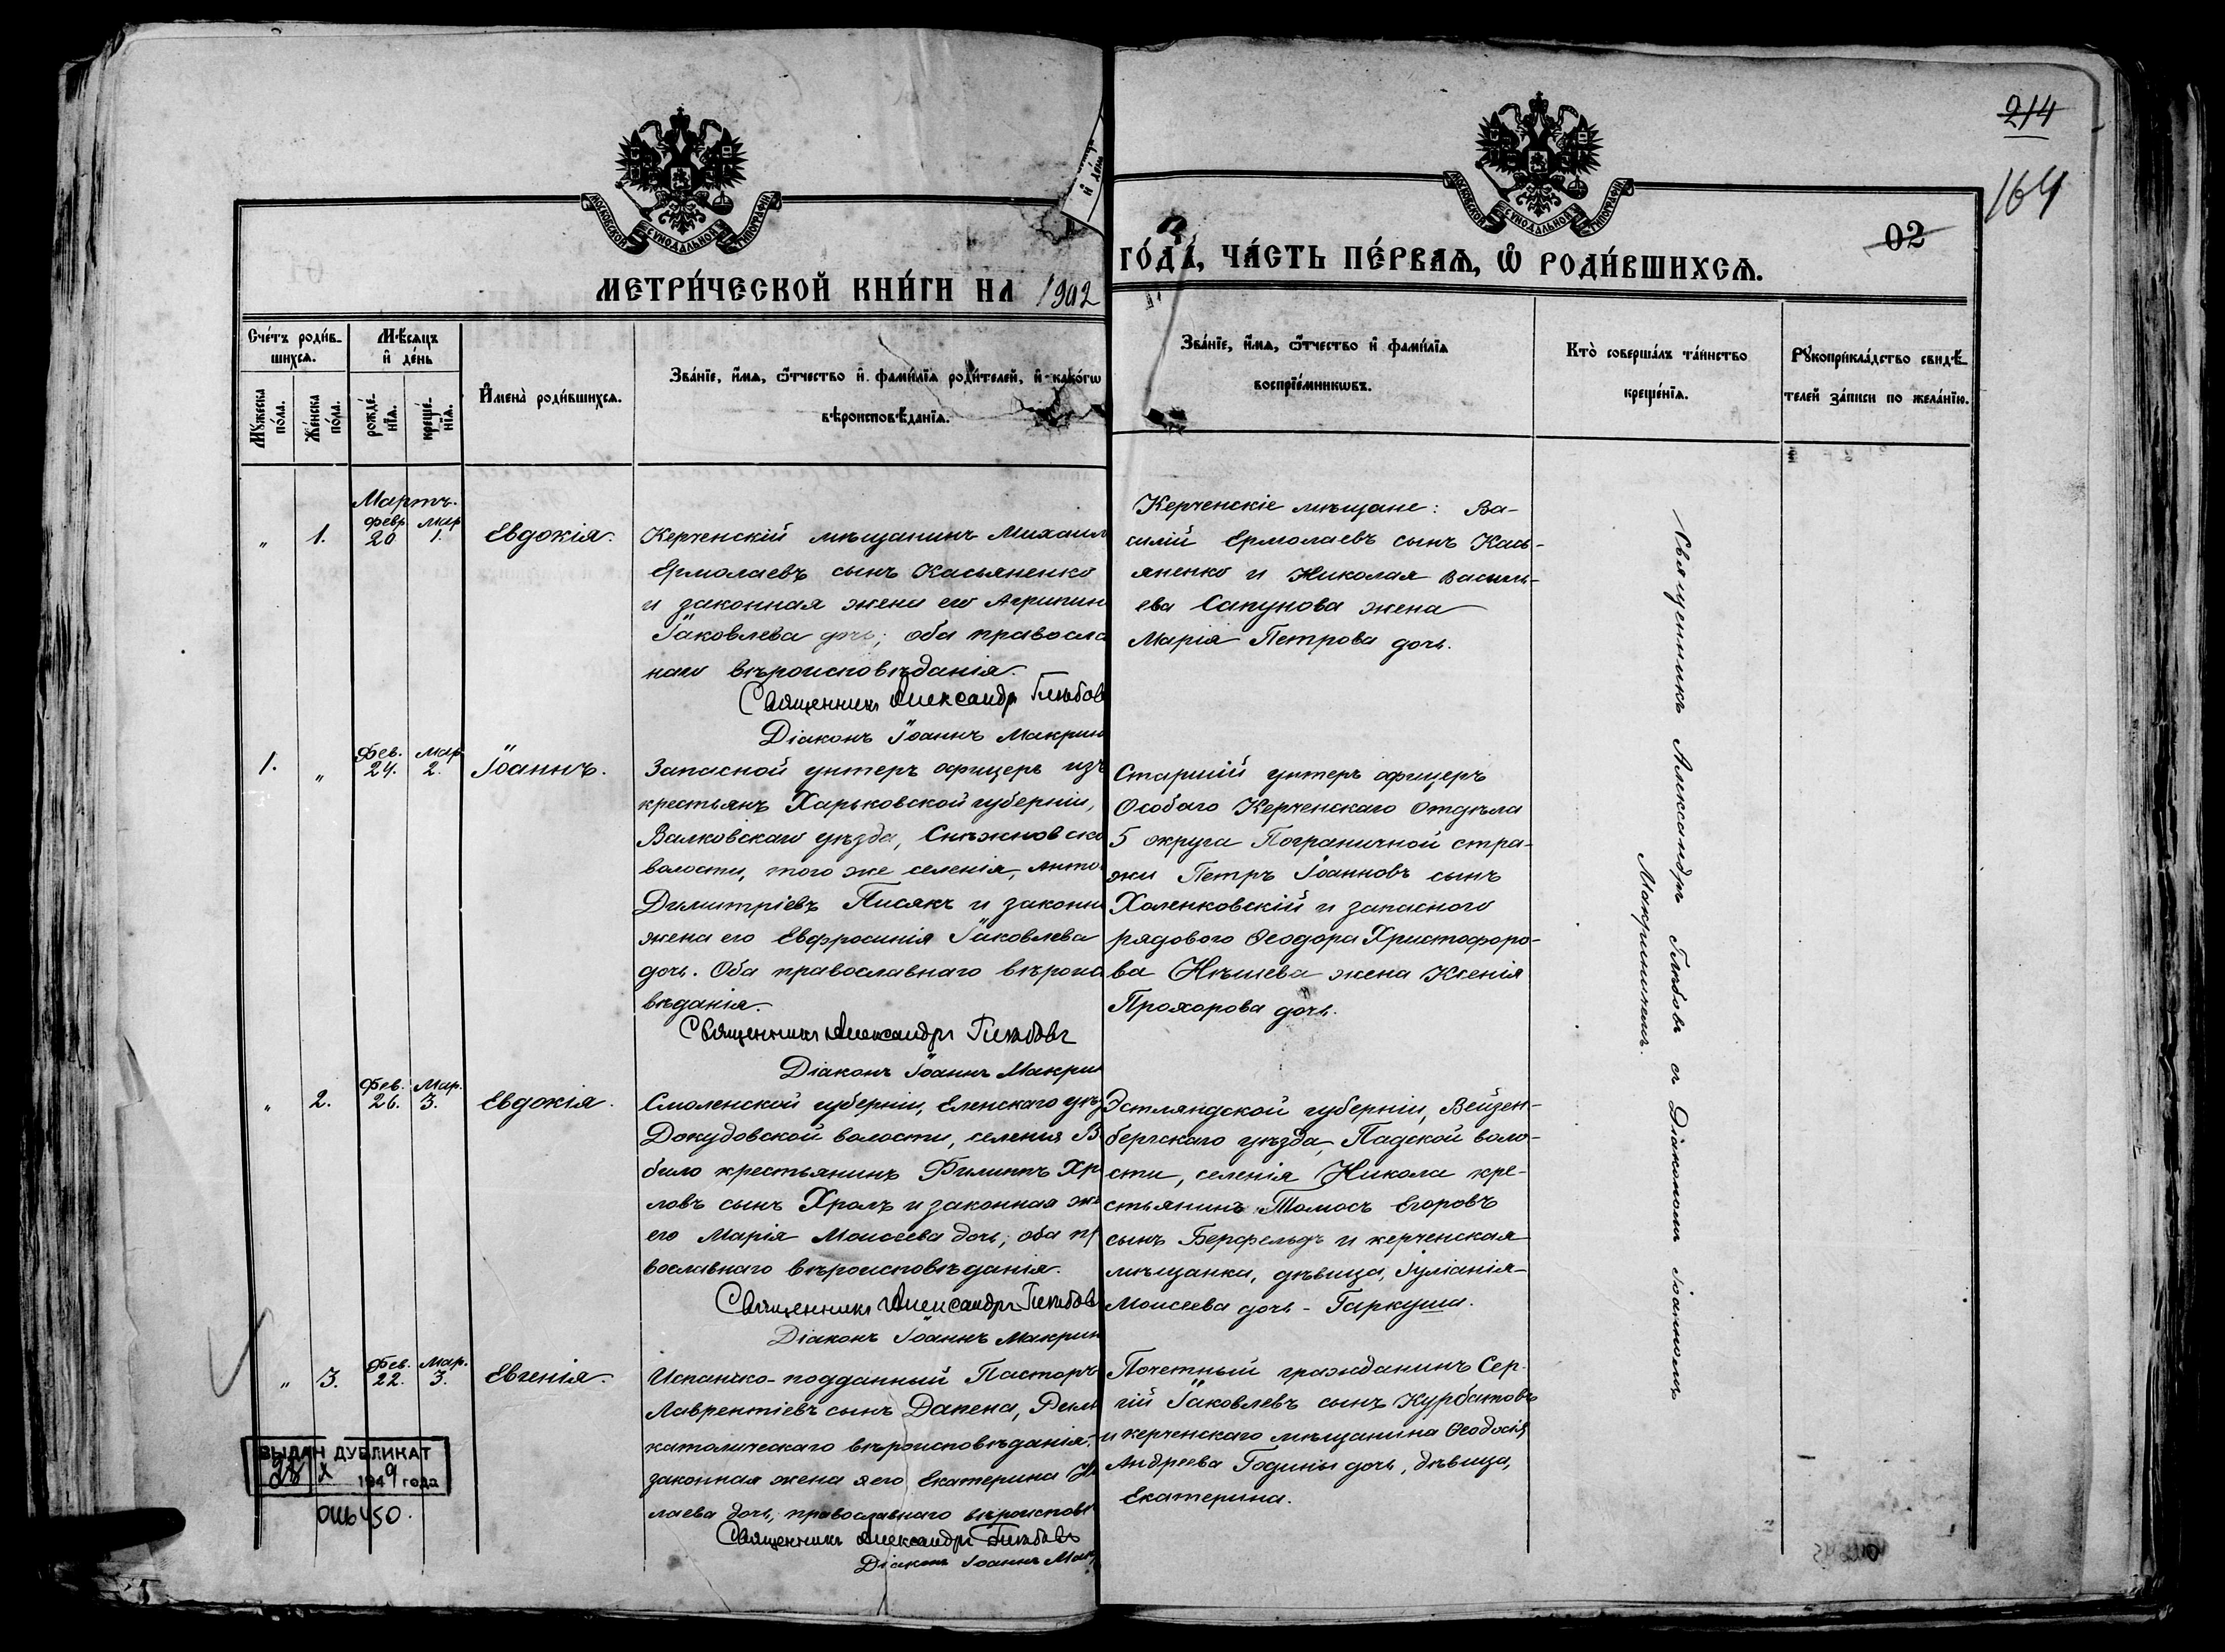 214
164
02
МОСКОВСКОЙ СУНОДАЛЬНОЙ ТИПОГРАФІИ
МОСКОВСКОЙ СУНОДАЛЬНОЙ ТИПОГРАФІИ
МЕТРИ́ЧЕСКОЙ КНИ́ГИ НА 1902
ГО́ДА̀, ЧА́СТЬ ПЕ́РВАѦ, Ѡ҆ РОДИ́ВШИХСѦ.
Сче́тъ роди́в-
шихсѧ.
Мꙋ́жеска по́ла.
Же́нска по́ла.
Мѣ́сѧцъ
и҆ де́нь
рожде́-
нїѧ.
креще́-
нїѧ.
И҆мена̀ роди́вшихсѧ.
Зва́нїе, и҆́мѧ, ѻ҆́тчество и҆ фами́лїѧ роди́телей, и҆ како́гѡ
вѣроисповѣ́данїѧ.
Зва́нїе, и҆́мѧ, ѻ҆́тчество и҆ фами́лїѧ
воспрїе́мникѡвъ.
Кто̀ соверша́лъ та́инство
креще́нїѧ.
Рꙋкоприкла́дство свидѣ́-
телей за́писи по жела́нїю.
Мартъ.
„ 1. Февр. 20 Мар. 1. Евдокія.
Керченскій мѣщанинъ Михаил
Ермолаевъ сынъ Касьяненко
и законная жена его Агрипин
Іаковлева дочь; оба правосла
наго вѣроисповѣданія.
Священникъ Александръ Глѣбов
Діаконъ Іоаннъ Макрин
Керченскіе мѣщане: Ва-
силій Ермолаевъ сынъ Кась-
яненко и Николая Василь-
ева Сапунова жена
Марія Петрова дочь.
1. „ Фев. 24. Мар. 2. Іоаннъ.
Запасной унтеръ офицеръ изъ
крестьянъ Харьковской губерніи,
Валковскаго уѣзда, Снѣжковско
волости, того же селенія, Анто
Димитріевъ Писякъ и законн
жена его Евфросинія Іаковлева
дочь. Оба православнаго вѣроис
вѣданія.
Священникъ Александръ Глѣбовъ
Діаконъ Іоаннъ Макрин
Старшій унтеръ офицеръ
Особаго Керченскаго Отдѣла
5 округа Пограничной стра-
жи Петръ Іоанновъ сынъ
Холенковскій и запасного
рядового Ѳеодора Христофоро-
ва Нѣшева жена Ксенія
Прохорова дочь.
„ 2. Фев. 26. Мар. 3. Евдокія.
Смоленской губерніи, Еленскаго уѣз
Докудовской волости, селенія В
било крестьянинъ Филиппъ Хр
ловъ сынъ Хролъ и законная же
его Марія Моисеева дочь; оба пр
вославнаго вѣроисповѣданія.
Священникъ Александръ Глѣбов
Діаконъ Іоаннъ Макрин
Эстляндской губерніи, Вейзен-
бергскаго уѣзда, Падской воло-
сти, селенія Никола кре-
стьянинъ Томосъ Егоровъ
сынъ Берфельдъ и керченская
мѣщанка, дѣвица, Іуліанія
Моисеева дочь - Гаркуша.
„ 3. Фев. 22. Мар. 3. Евгенія.
Испанско-подданный Пасторъ
Лаврентіевъ сынъ Дапена, Рим
католическаго вѣроисповѣданія,
законная жена его Екатерина Н
лаева дочь, православнаго вѣроисповѣ
Священникъ Александръ Глѣбовъ
Діаконъ Іоаннъ Мак
Почетный гражданинъ Сер-
гій Іаковлевъ сынъ Курбатовъ
и керченскаго мѣщанина Ѳеодосія
Андреева Годины дочь, дѣвица,
Екатерина.
Священникъ Александръ Глѣбовъ съ Діакономъ Іоанномъ
Макрининымъ.
ВЫДАН ДУБЛИКАТ
X 1949 года